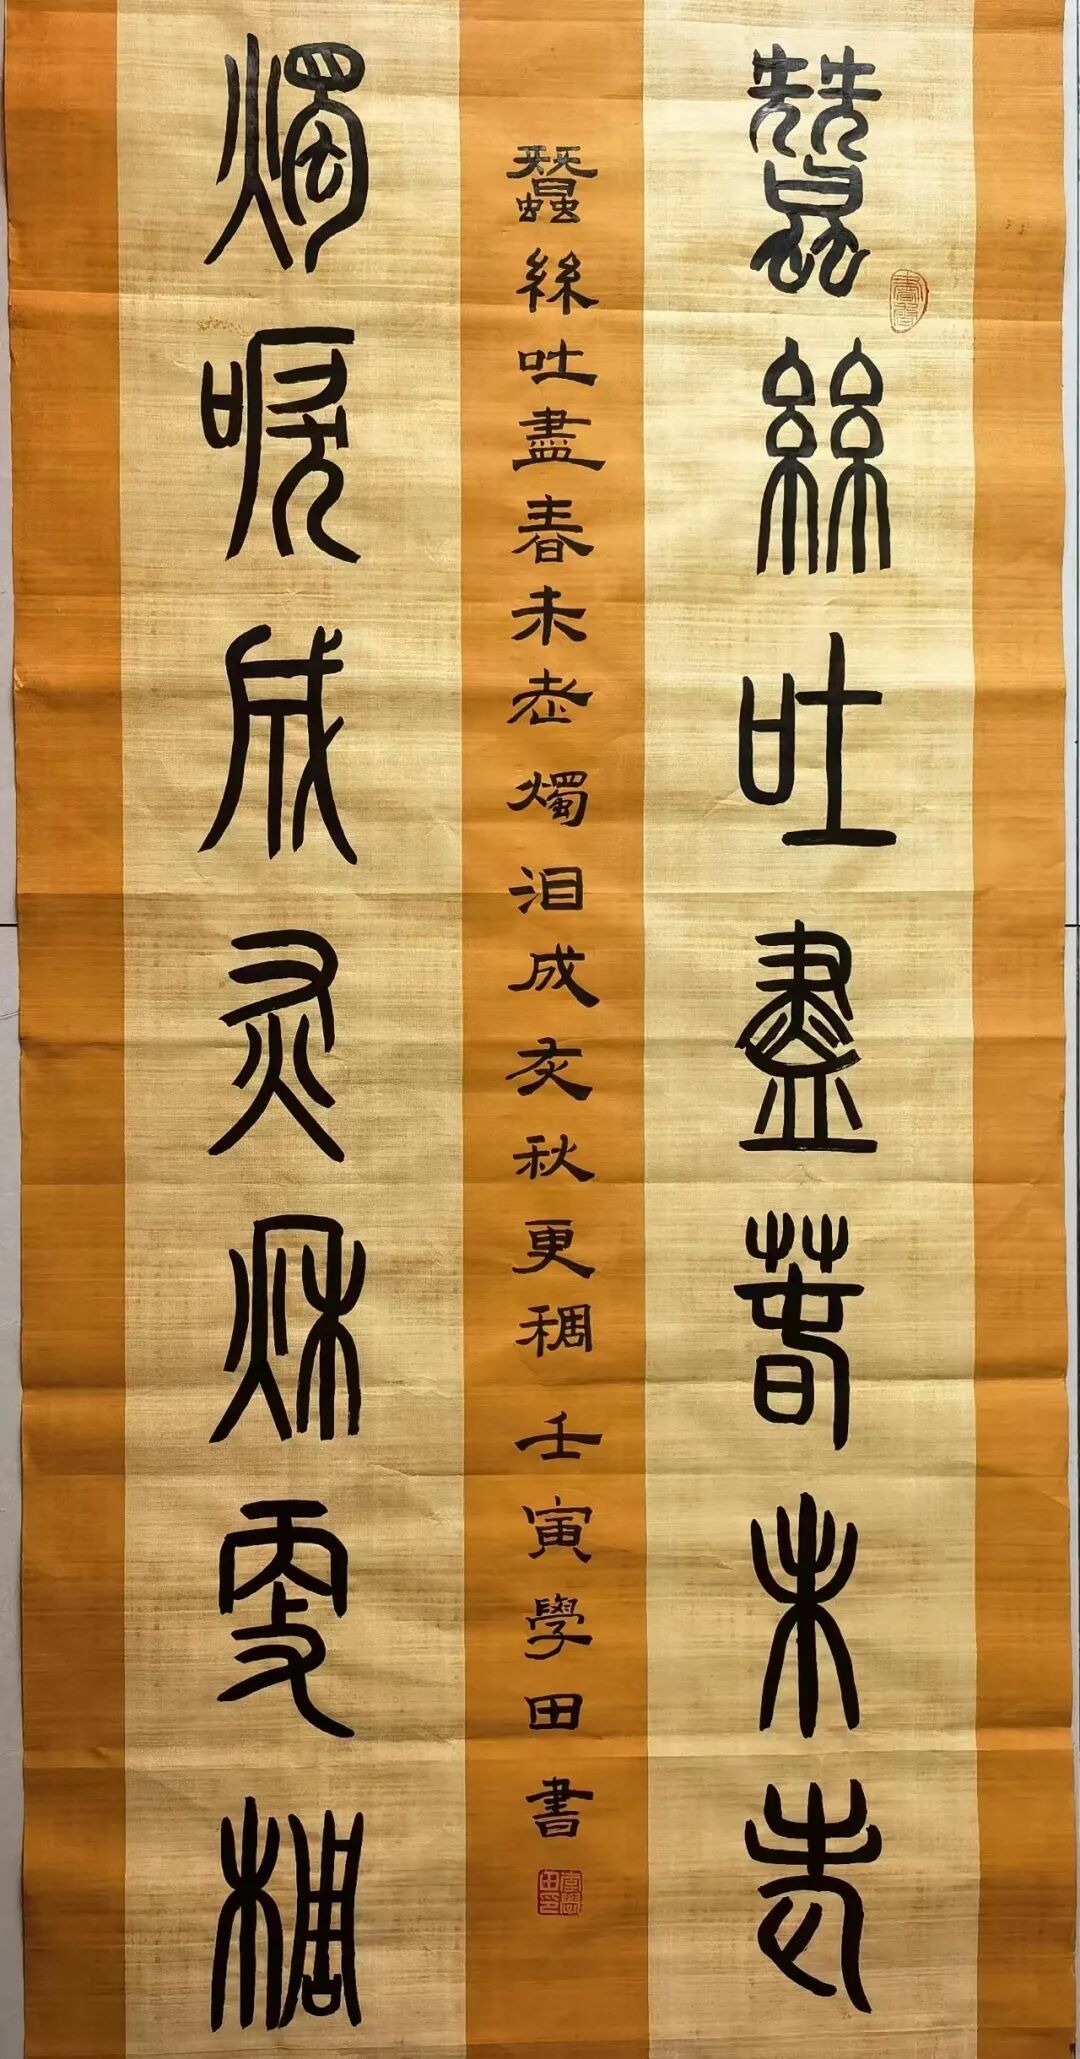 蠶絲吐盡春未老
蠶絲吐盡春未老 燭泪成灰秋更稠 壬寅學田書
燭唳成灰秋更稠